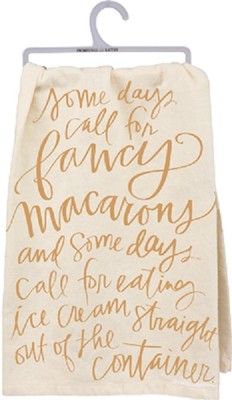 some days
call for
fancy
macarons
and some days
call for eating
ice cream straight
out of the
container.